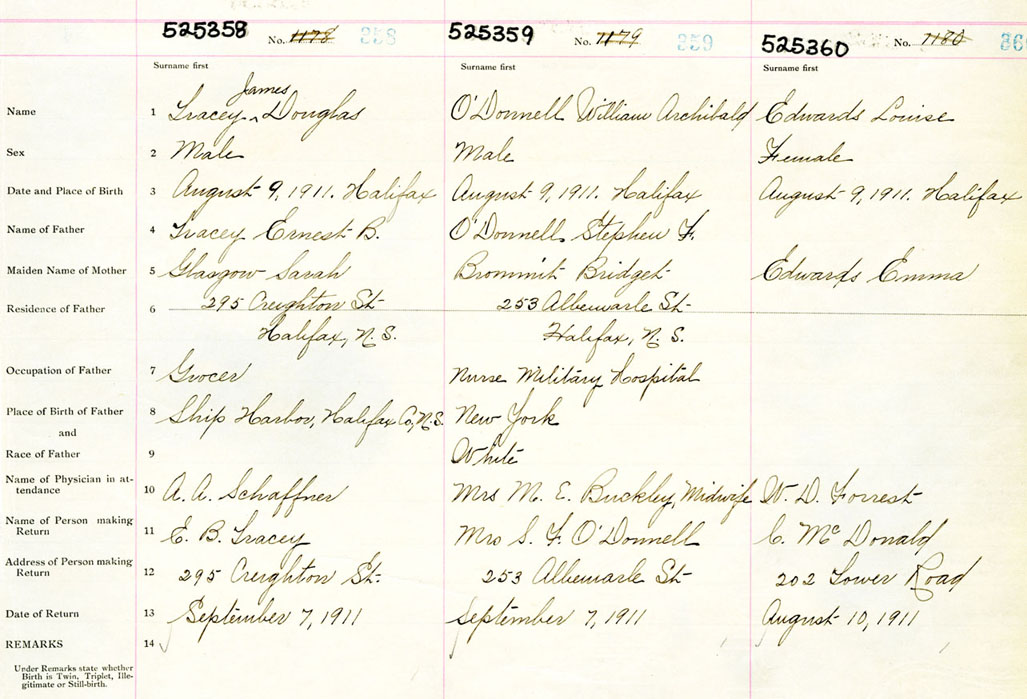 525358 No. 1178 358 525359 No. 1179 359 525360 No. 1180 360
Surname first Surname first Surname first
James
Name 1 Tracey ^ Douglas O'Donnell William Archibald Edwards Louise
Sex 2 Male Male Female
Date and Place of Birth 3 August 9, 1911. Halifax August 9, 1911. Halifax August 9, 1911. Halifax
Name of Father 4 Tracey Ernest B. O'Donnell Stephen F.
Maiden Name of Mother 5 Glasgow Sarah Brommit Bridget Edwards Emma
Residence of Father 6 295 Creighton St 253 Albemarle St
Halifax, N.S. Halifax, N.S.
Occupation of Father 7 Grocer Nurse Military Hospital
Place of Birth of Father 8 Ship Harbor, Halifax Co, N.S. New York
and
Race of Father 9 White
Name of Physician in at-
tendance 10 A. A. Schaffner Mrs M. E. Buckley, Midwife W. D. Forrest
Name of Person making
Return 11 E. B. Tracey Mrs S. F. O'Donnell C. McDonald
Address of Person making
Return 12 295 Creighton St. 253 Albemarle St 202 Tower Road
Date of Return 13 September 7, 1911 September 7, 1911 August 10, 1911
REMARKS 14
Under Remarks state whether
Birth is Twin, Triplet, Ille-
gitimate or Still-birth.